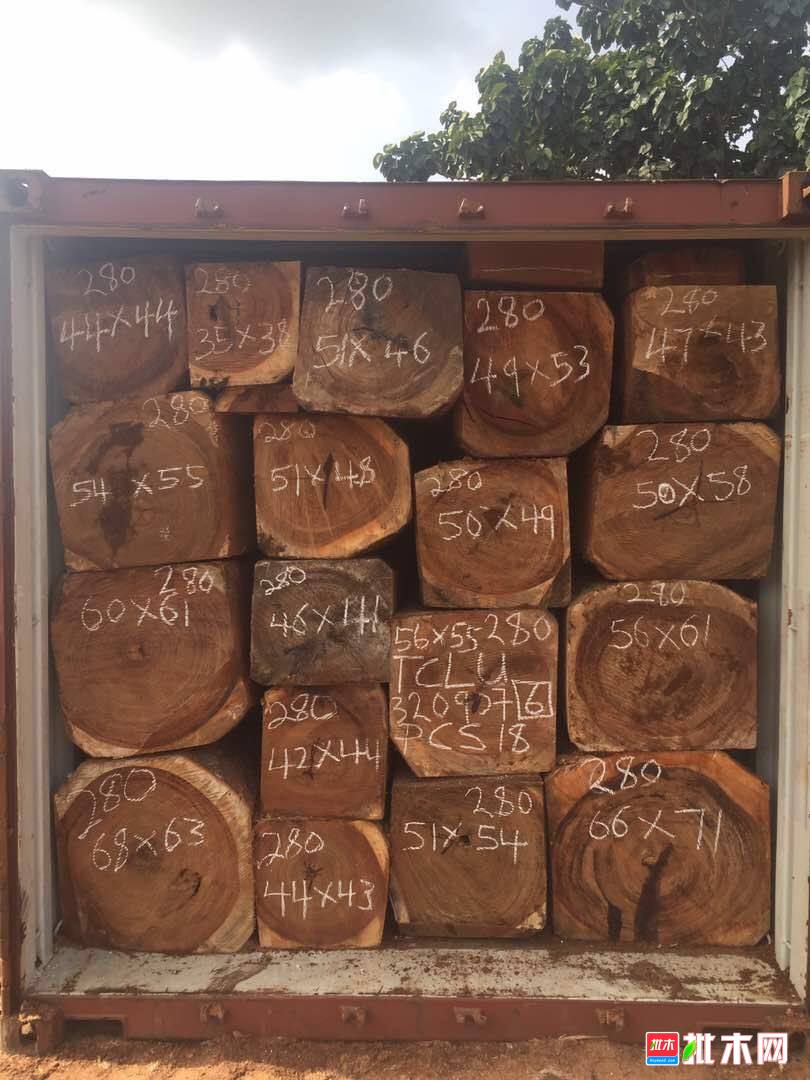 280
44×44
280
35×38
280
51×46
280
49×53
280
47×43
280
54×55
280
51×48
280
50×49
280
50×58
280
60×61
280
46×44
56×55 280
TCLU
320907 6
PCS 18
280
56×61
280
42×44
280
68×63
280
44×43
280
51×54
280
66×71
批木
批木网